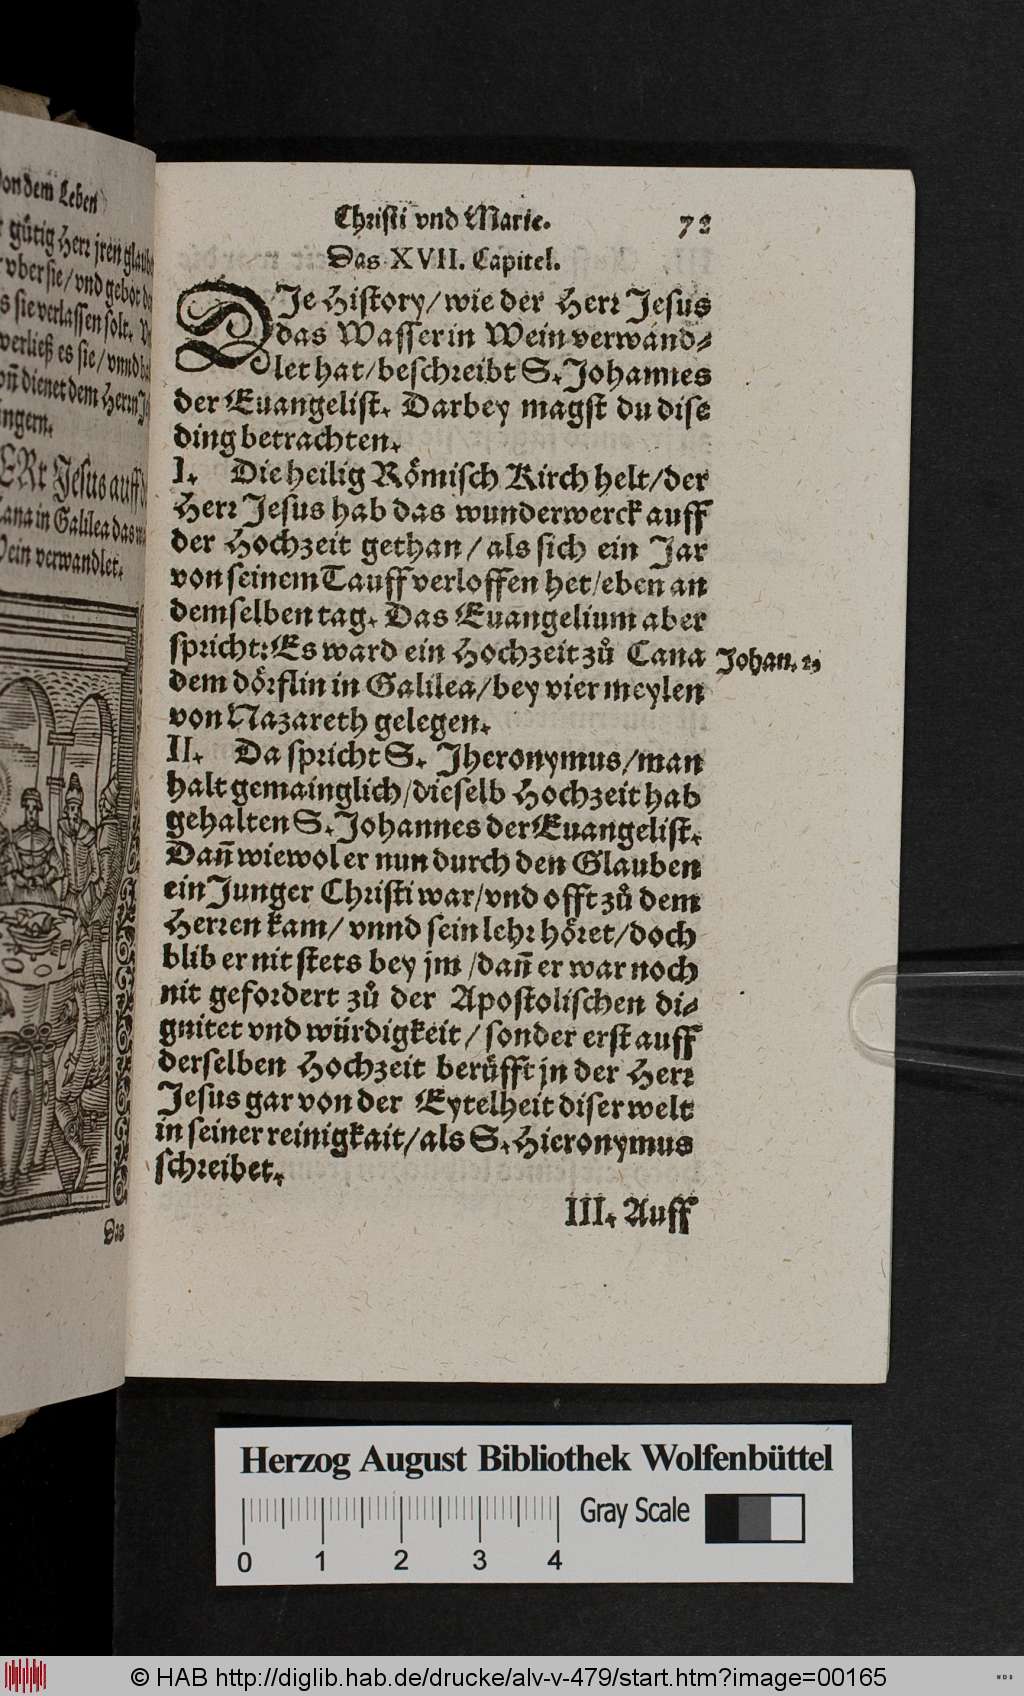 von dem Leben
gütig Herr jren glaub
vber sie / vnd gebot
sie verlassen solt.
verließ es sie / vnnd
dienet dem Herrn
ngern.
ERr Jesus auff
Cana in Galilea das
Wein verwandlet.
Das
Christi vnd Marie. 72
Das XVII. Capitel.
DJe History / wie der Herr Jesus
das Wasser in Wein verwand⸗
let hat / beschreibt S. Johannes
der Euangelist. Darbey magst du dise
ding betrachten.
I. Die heilig Römisch Kirch helt / der
Herr Jesus hab das wunderwerck auff
der Hochzeit gethan / als sich ein Jar
von seinem Tauff verloffen het / eben an
demselben tag. Das Euangelium aber
spricht: Es ward ein Hochzeit zů Cana
Johan. 2.
dem dörflin in Galilea / bey vier meylen
von Nazareth gelegen.
II. Da spricht S. Jheronymus / man
halt gemainglich / dieselb Hochzeit hab
gehalten S. Johannes der Euangelist.
Dañ wiewol er nun durch den Glauben
ein Junger Christi war / vnd offt zů dem
Herren kam / vnnd sein lehr höret / doch
blib er nit stets bey jm / dañ er war noch
nit gefordert zů der Apostolischen di⸗
gnitet vnd würdigkeit / sonder erst auff
derselben Hochzeit berüfft jn der Herr
Jesus gar von der Eytelheit diser welt
in seiner reinigkait / als S. Hieronymus
schreibet.
III. Auff
Herzog August Bibliothek Wolfenbüttel
Gray Scale
0 1 2 3 4
© HAB http://diglib.hab.de/drucke/alv-v-479/start.htm?image=00165